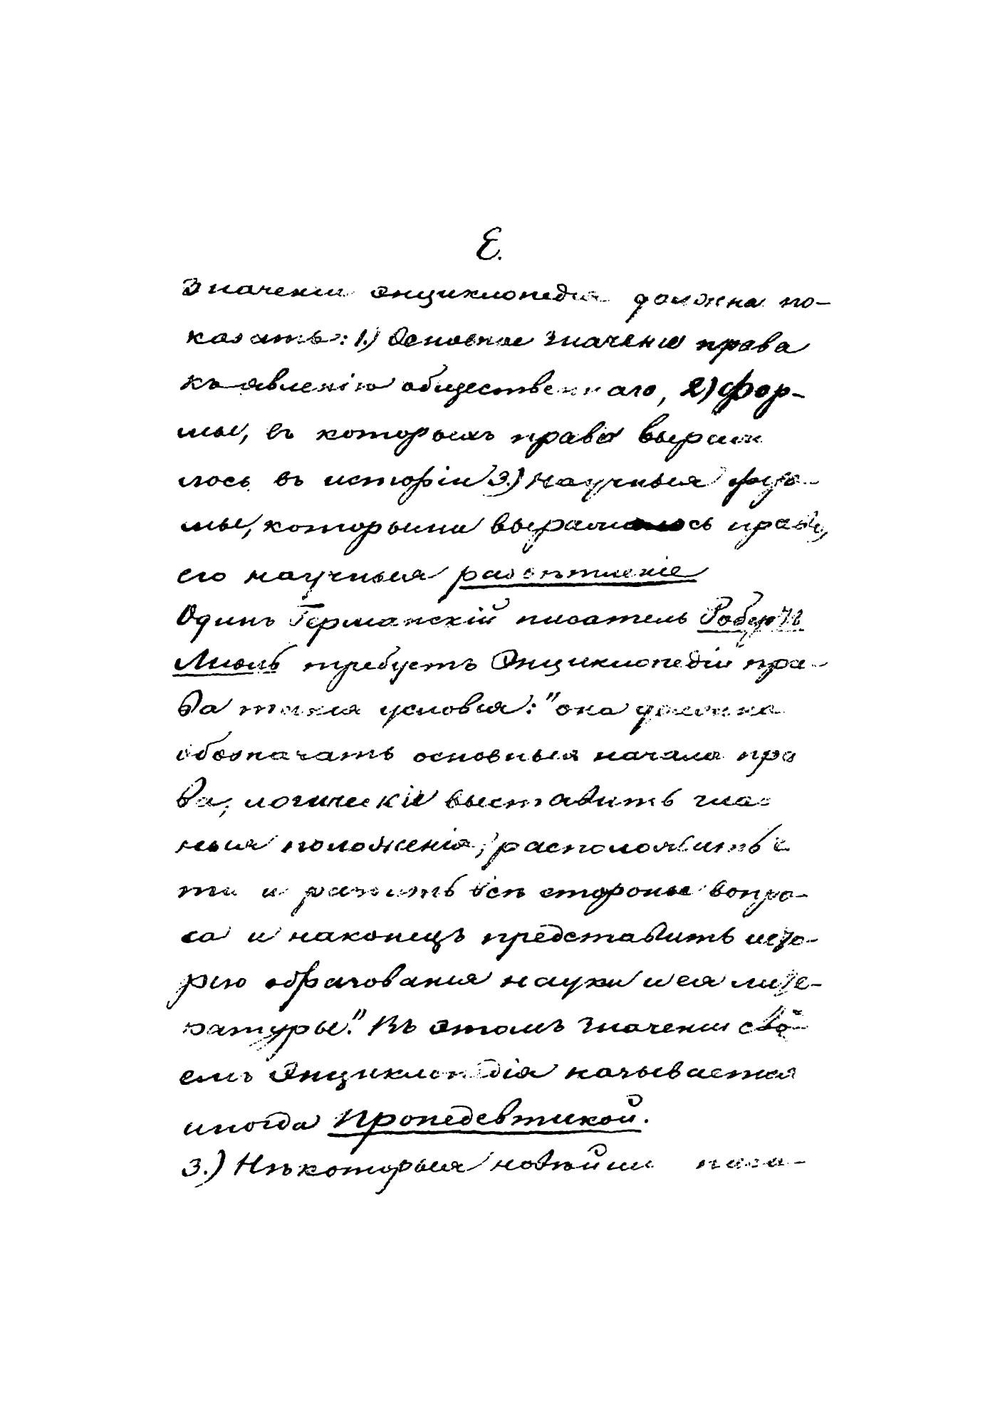 Е.
значеніи энциклопедія должна по-
казать: 1.) Основное значеніе права
къ явленію общественнаго, 2) фор-
мы, въ которыхъ право вырази
лось въ исторіи 3.) Научныя фор-
мы, которыми выразилось право,
его научныя развѣтвленіе
Одинъ Германскій писатель Робертъ
Моль требуетъ Энциклопедіи пра-
ва такія условія: "она должна
обозначать основныя начала пра
ва, логически выставить глав
ныя положенія, расположить
и стороны вопро-
са и наконецъ представить исто-
рію образованія науки и ея лите-
ратуры." Въ этомъ значеніи сво-
емъ Энциклопедія называется
иногда Пропедевтикой.
3.) Нѣкоторыя новѣйши писа-